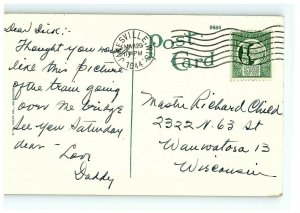 Dear Dick:-
Thought you would
like this picture
of the tram going
over the bridge
See you Saturday
dear - Love
Daddy
JANESVILLE, WIS.
1944
9480
Post
Card
Master Richard Child
2322 N. 63 St
Wauwatosa 13
Wisconsin